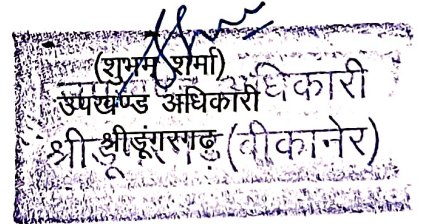 (शुभम् शर्मा)
उपखण्ड अधिकारी
श्रीडूंगरगढ़ (बीकानेर)